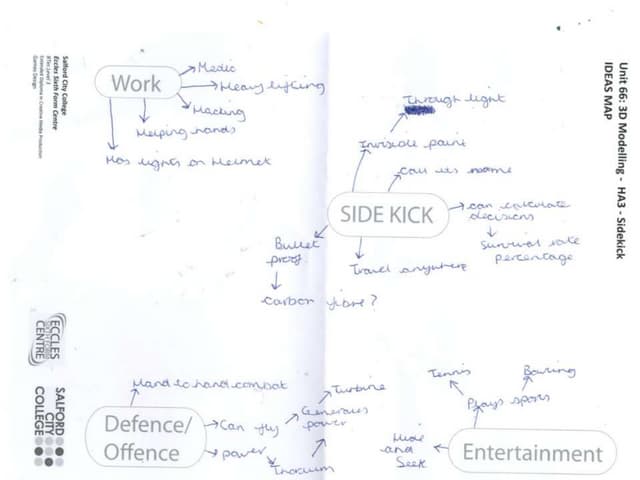 Unit 66: 3D Modelling - HA3 - Sidekick
IDEAS MAP
Salford City College
Eccles Sixth Form Centre
BTec Level 3
Extended Diploma in Creative Media Production
Games Design
Work
Medic
Heavy lifting
Hacking
Helping hands
Has lights on Helmet
SIDE KICK
Through light
Invisible paint
call its name
can calculate
decisions
Survival rate
percentage
Travel anywhere
Bullet
proof
carbon fibre?
Defence/
Offence
Hand to hand combat
Can fly
Generates
power
Turbine
power
Entertainment
Plays sports
Tennis
Boxing
Hide
and
Seek
ECCLES
CENTRE
SALFORD
CITY
COLLEGE